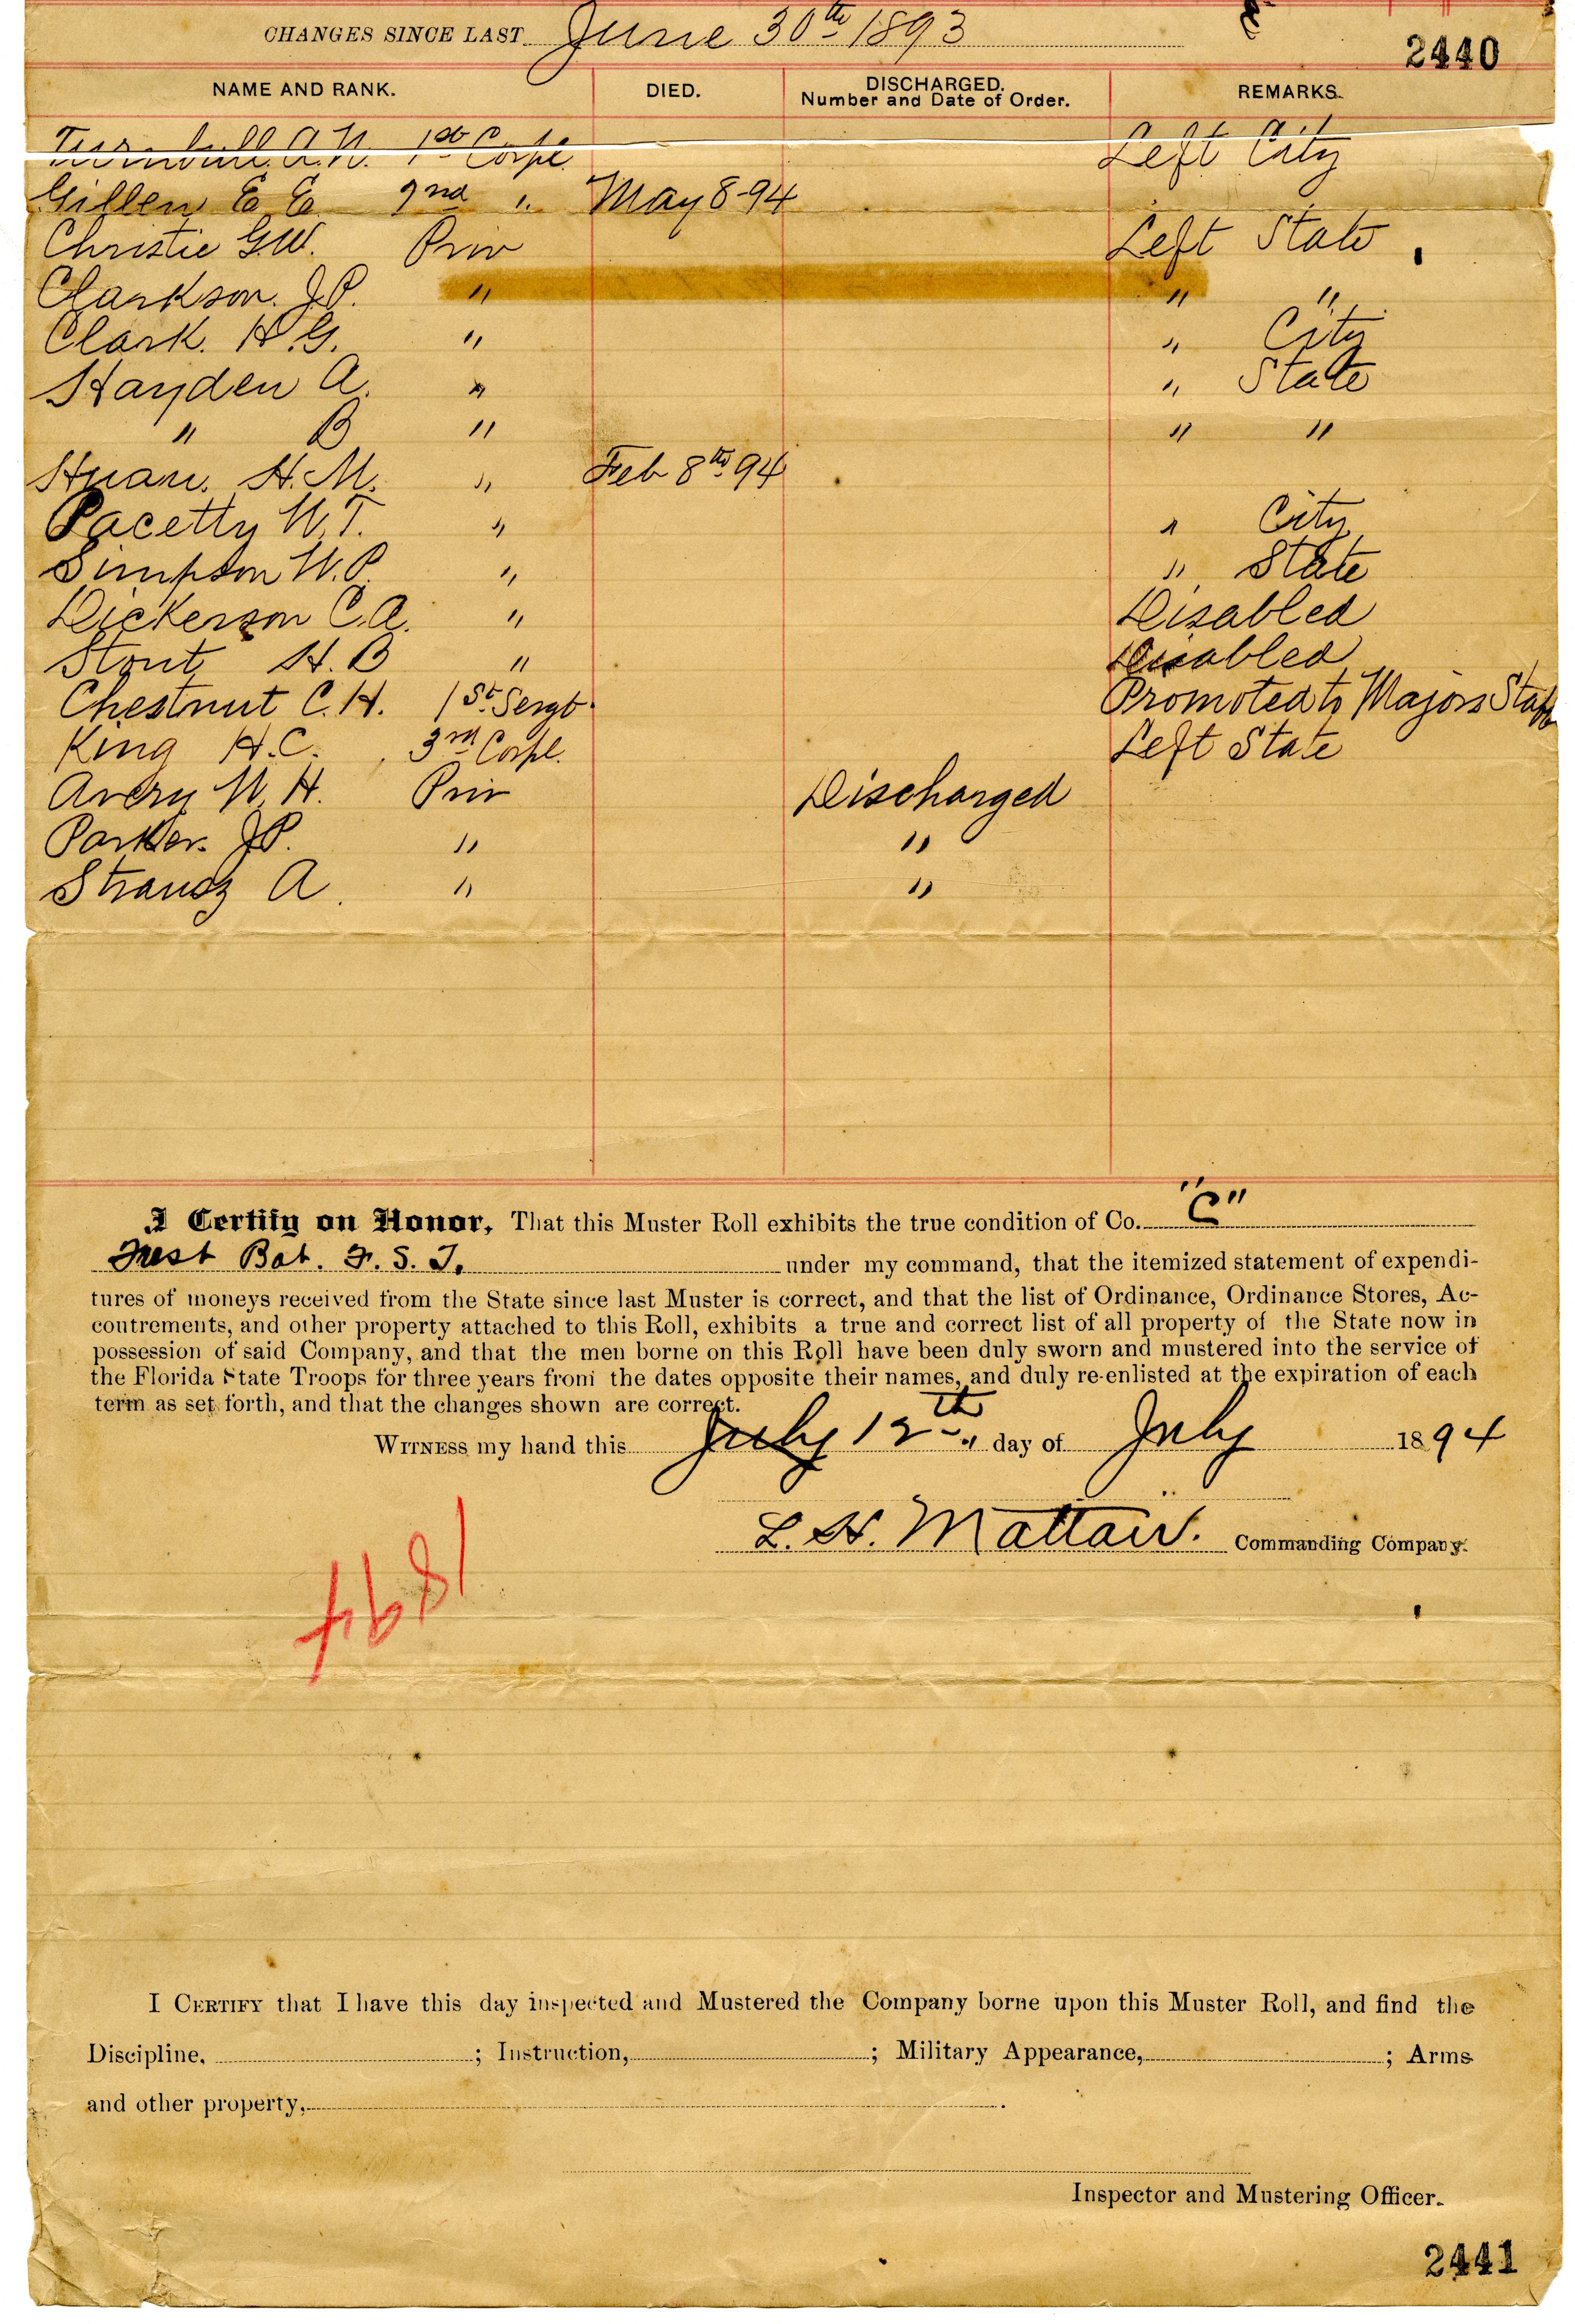 CHANGES SINCE LAST June 30th 1893
2440
NAME AND RANK. DIED. DISCHARGED. Number and Date of Order. REMARKS.
Turnbull A.N. 1st Corpl Left City
Gillen E E 2nd " May 8-94
Christie G.W. Priv Left State
Clarkson. J.P. " " "
Clark. H.G. " " City
Hayden A. " " State
" B " " "
H.M. " Feb 8th 94
Pacetty W.T. " " City
Simpson W.P. " " State
Dickerson C.A. " Disabled
Stout H.B " Disabled
Chestnut C.H. 1st Sergt. Promoted to Majors Staff
King H.C. 3rd Corpl. Left State
Avery W.H. Priv Discharged
Parker. J.P. " "
Strausz A. " "
I Certify on Honor, That this Muster Roll exhibits the true condition of Co. "C"
First Bat. F. S. T. under my command, that the itemized statement of expendi-
tures of moneys received from the State since last Muster is correct, and that the list of Ordinance, Ordinance Stores, Ac-
coutrements, and other property attached to this Roll, exhibits a true and correct list of all property of the State now in
possession of said Company, and that the men borne on this Roll have been duly sworn and mustered into the service of
the Florida State Troops for three years from the dates opposite their names, and duly re-enlisted at the expiration of each
term as set forth, and that the changes shown are correct.
WITNESS my hand this July 12th " day of July 1894
L. H. Mattair. Commanding Company.
1894
I CERTIFY that I have this day inspected and Mustered the Company borne upon this Muster Roll, and find the
Discipline, ; Instruction, ; Military Appearance, ; Arms
and other property, .
Inspector and Mustering Officer.
2441